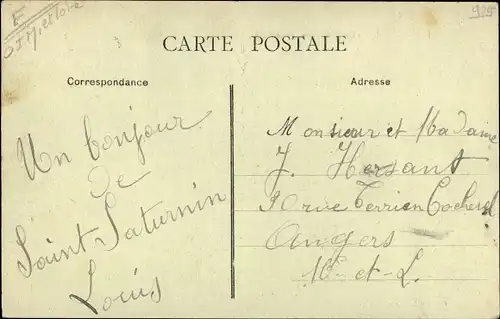 E
D I M et Loire
929
CARTE POSTALE
Correspondance
Adresse
Un bonjour
de
Saint-Saturnin
Louis
Monsieur et Madame
J. Hersant
rue Terrien Cocherel
Angers
M-et-L.